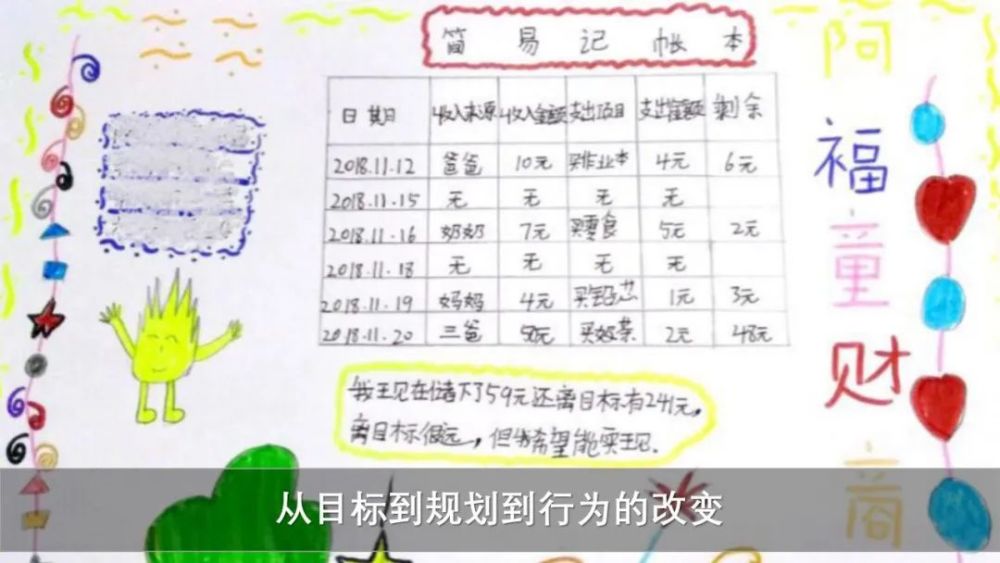 简易记帐本
日期 收入来源 收入金额 支出项目 支出金额 剩余
2018.11.12 爸爸 10元 买作业本 4元 6元
2018.11.15 无 无 无 无
2018.11.16 奶奶 7元 买零食 5元 2元
2018.11.18 无 无 无 无
2018.11.19 妈妈 4元 买铅芯 1元 3元
2018.11.20 三爸 50元 买奶茶 2元 48元
我王见在储下了59元还离目标有241元,
离目标很远,但我希望能实王见.
阿福童财商
从目标到规划到行为的改变